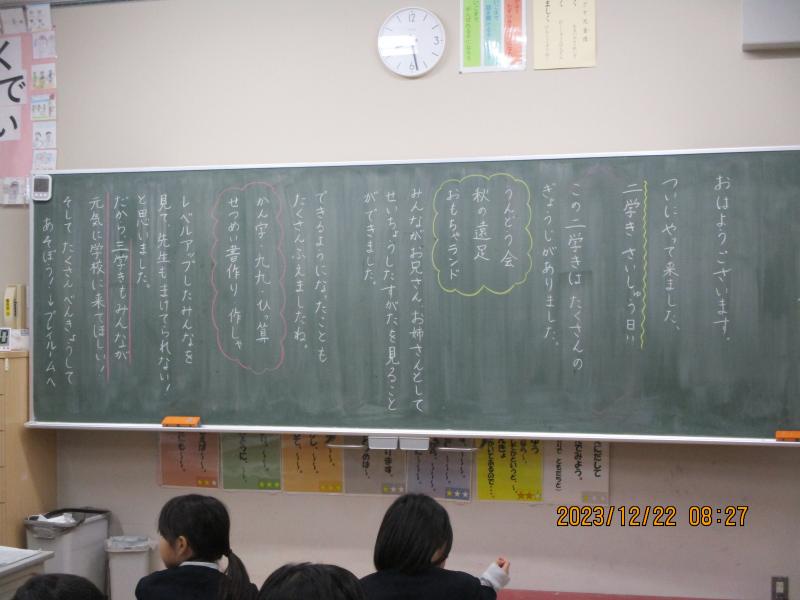 おはようございます。
ついにやって来ました、
二学き さいしゅう日!!
この二学きは たくさんの
ぎょうじがありました。
うんどう会
秋の遠足
おもちゃランド
みんながお兄さん、お姉さんとして
せいちょうしたすがたを見ること
ができました。
できるようになったことも
たくさんふえましたね。
かん字・九九・ひっ算
せつめい書作り
レベルアップしたみんなを
見て、先生もまけてられない!
と思いました。
だから三学きもみんなが
元気に学校に来てほしい!
そして たくさん べんきょうして
あそぼう!→プレイルームへ
2023/12/22 08:27